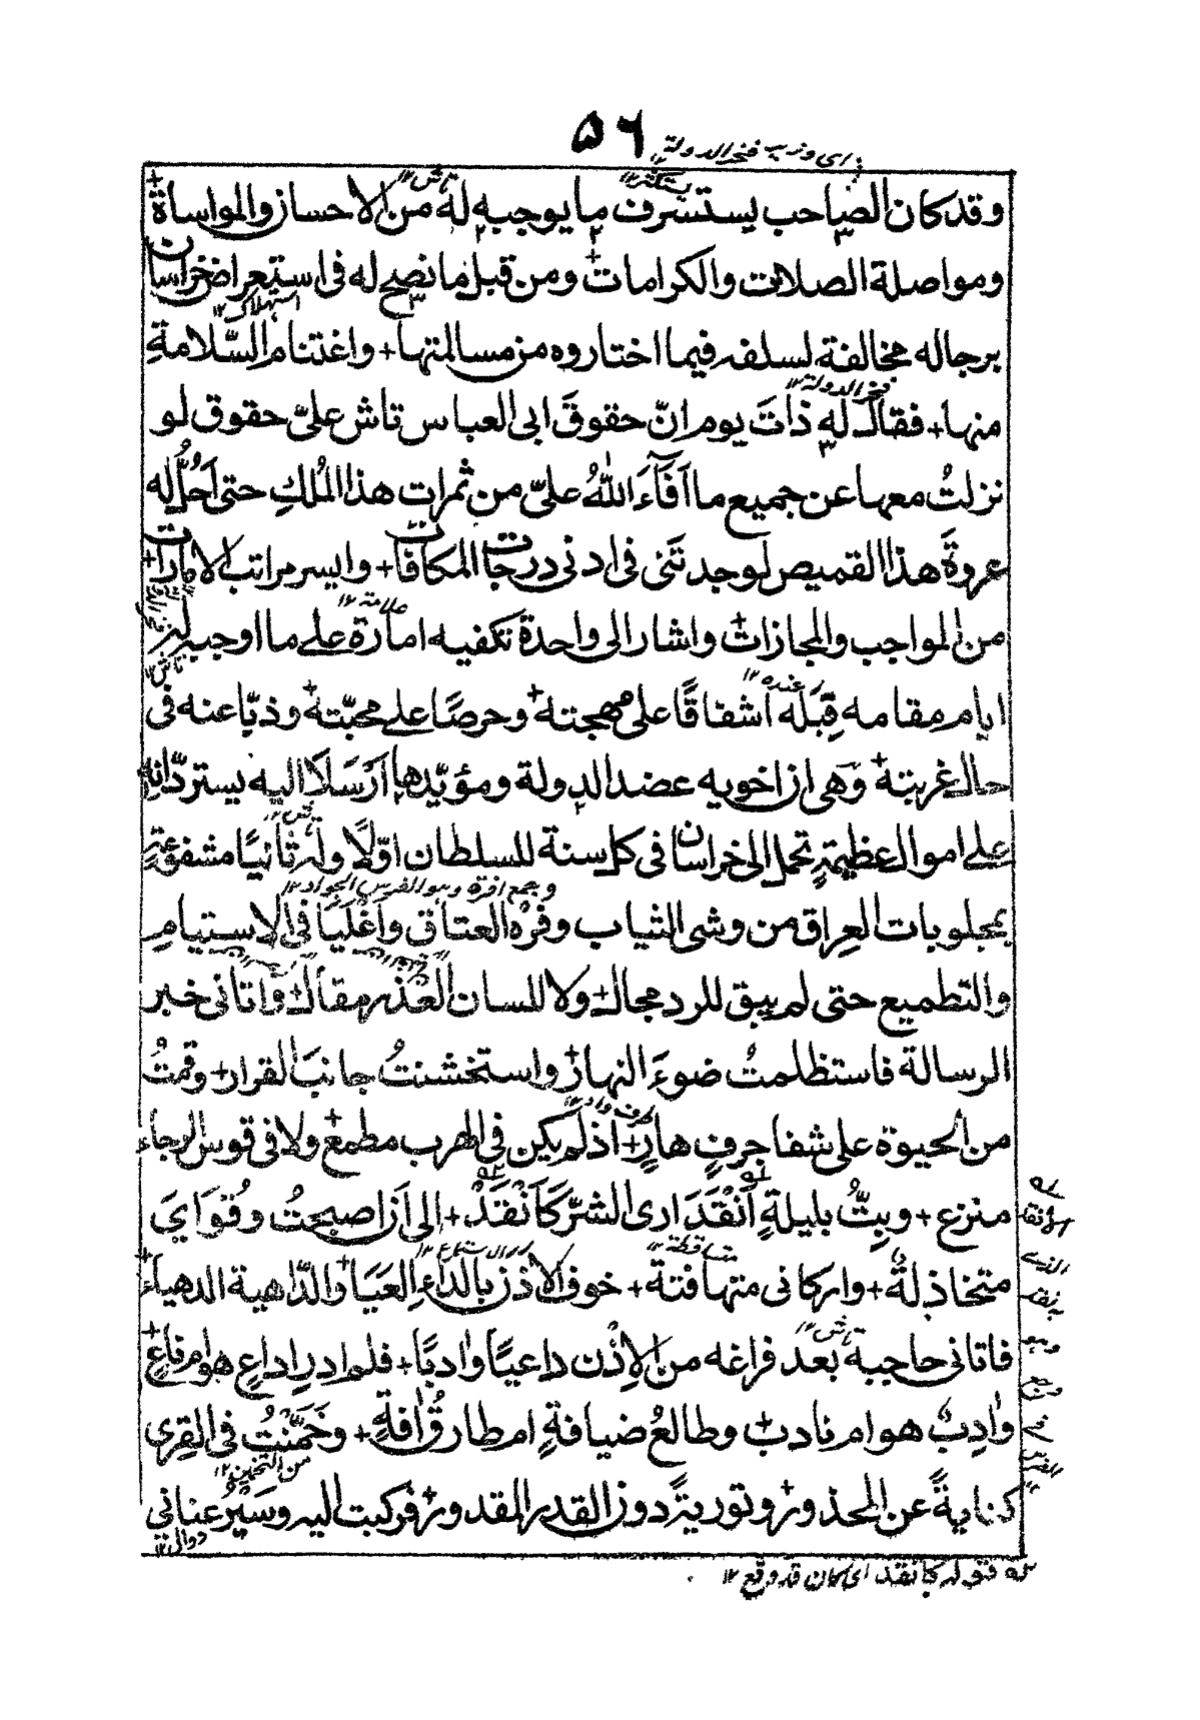 ۵۶
ای وزیر فخر الدولة
وقد كان الصاحب يستسرف ما يوجبه له من الاحسان والمواساة
ومواصلة الصلات والكرامات ومن قبل ما نصح له فى استعراض خراسان
برجاله مخالفة لسلفه فيما اختاروه من مسالمتها + واغتنام السّلامةِ
منها + فقال له ذاتَ يوم انّ حقوقَ ابى العباس تاش علىّ حقوق لو
نزلتُ معها عن جميع ما اَفَآءَ اللهُ علىّ من ثمرات هذا المُلكِ حتى اَحُلُّ له
عروةَ هذا القميص لوجدتَنى فى ادنى درجات المكافات + وايسر مراتب الامارات
من المواجب والمجازات واشار الى واحدة تكفيه امارة على ما اوجبه
ايام مقامه قِبَله اشفاقًا على مهجته + وحرصًا على محبّته وذبّا عنه فى
حال غربته وهى ان اخويه عضد الدولة ومؤيّدها اَرْسَلا اليه يستردّانه
على اموال عظيمةٍ تحمل الى خراسان فى كل سنة للسلطان اوّلًا وله ثانيًا مشفوعةٍ
بمجلوبات العِراق من وشى الثياب وفُرْه العتاق واَغْلَيَا فى الاستيام
والتطميع حتى لم يبق للرد مجال + ولا للسان العُذر مقال + واتانى خبر
الرسالة فاستظلمتُ ضوءَ النهار واستخشنتُ جانبَ القرار + وقمتُ
من الحيوة على شفا جرفٍ هارٍ + اذ لم يكن فى الهرب مطمع + ولا فى قوس الرجاء
منزع + وبِتُّ بليلةِ اَنْقَدَ ارى الشرّ كَاَنْقَدْ + الى ان اصبحتُ وقُوَاىَ
متخاذلة + واركانى متهافتة + خوف الاذن بالداء العَيَاء والدّاهية الدهياء
فاتانى حاجبه بعد فراغه من الاِذْن داعيًا وادبًا + فلم ادرِ اداعٍ هو ام ناعٍ
وادبٌ هو ام نادب + وطالعُ ضيافةٍ ام طارقُ اٰفةٍ + وخَمَّنْتُ فى القرى
كنايةً عن المحذور + وتوريةً دون القدر المقدور + فركبت اليه وسَيْرُ عنانى
قوله كانقد ای كان قد وقع ۱۲